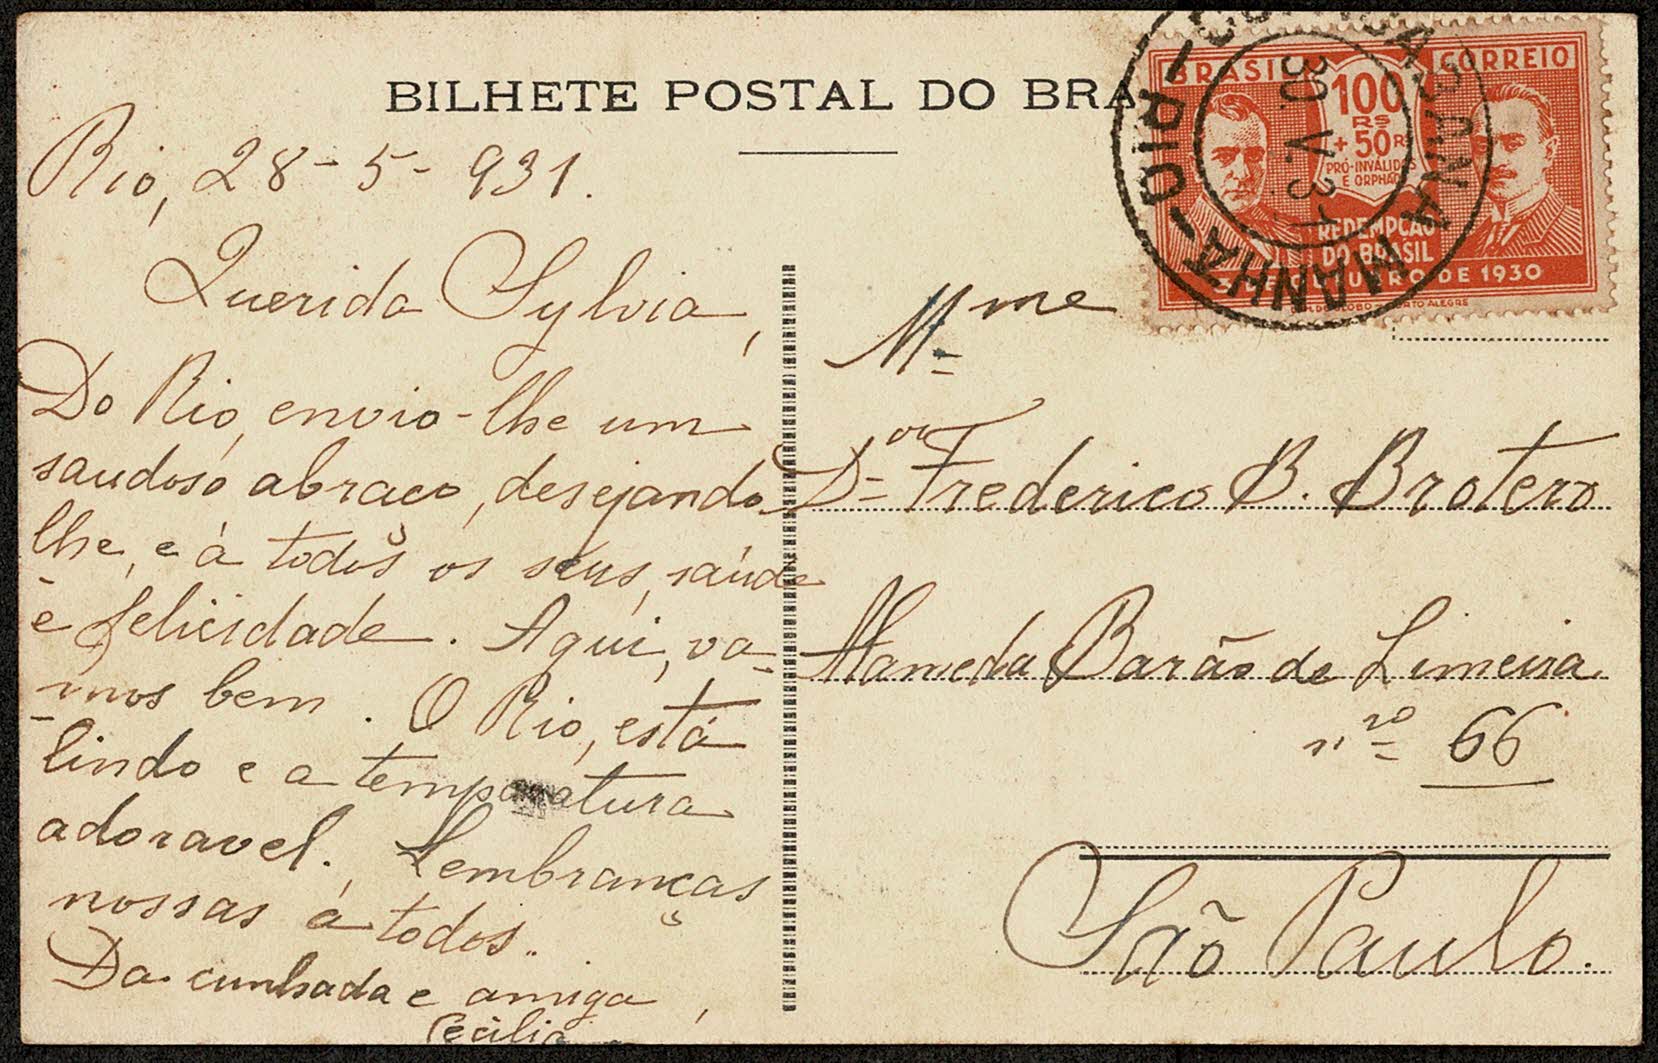 BILHETE POSTAL DO BRA
Rio, 28-5-931.
Querida Sylvia,
Do Rio, envio-lhe um
saudoso abraço, desejando
lhe, e á todos os seus, saúde
e felicidade. Aqui, va-
mos bem. O Rio, está
lindo e a temperatura
adoravel. Lembranças
nossas á todos..
Da cunhada e amiga,
Cecilia
BRASIL CORREIO
100 RS
+ 50 RS
PRÓ-INVALIDOS
E ORPHÃOS
REDEMPÇÃO
DO BRASIL
3 DE OUTUBRO DE 1930
PORTO ALEGRE
RIO
30.V.31
MANHÃ
Mme
Dor Frederico B. Brotero
Alameda Barão de Limeira
nro 66
São Paulo.